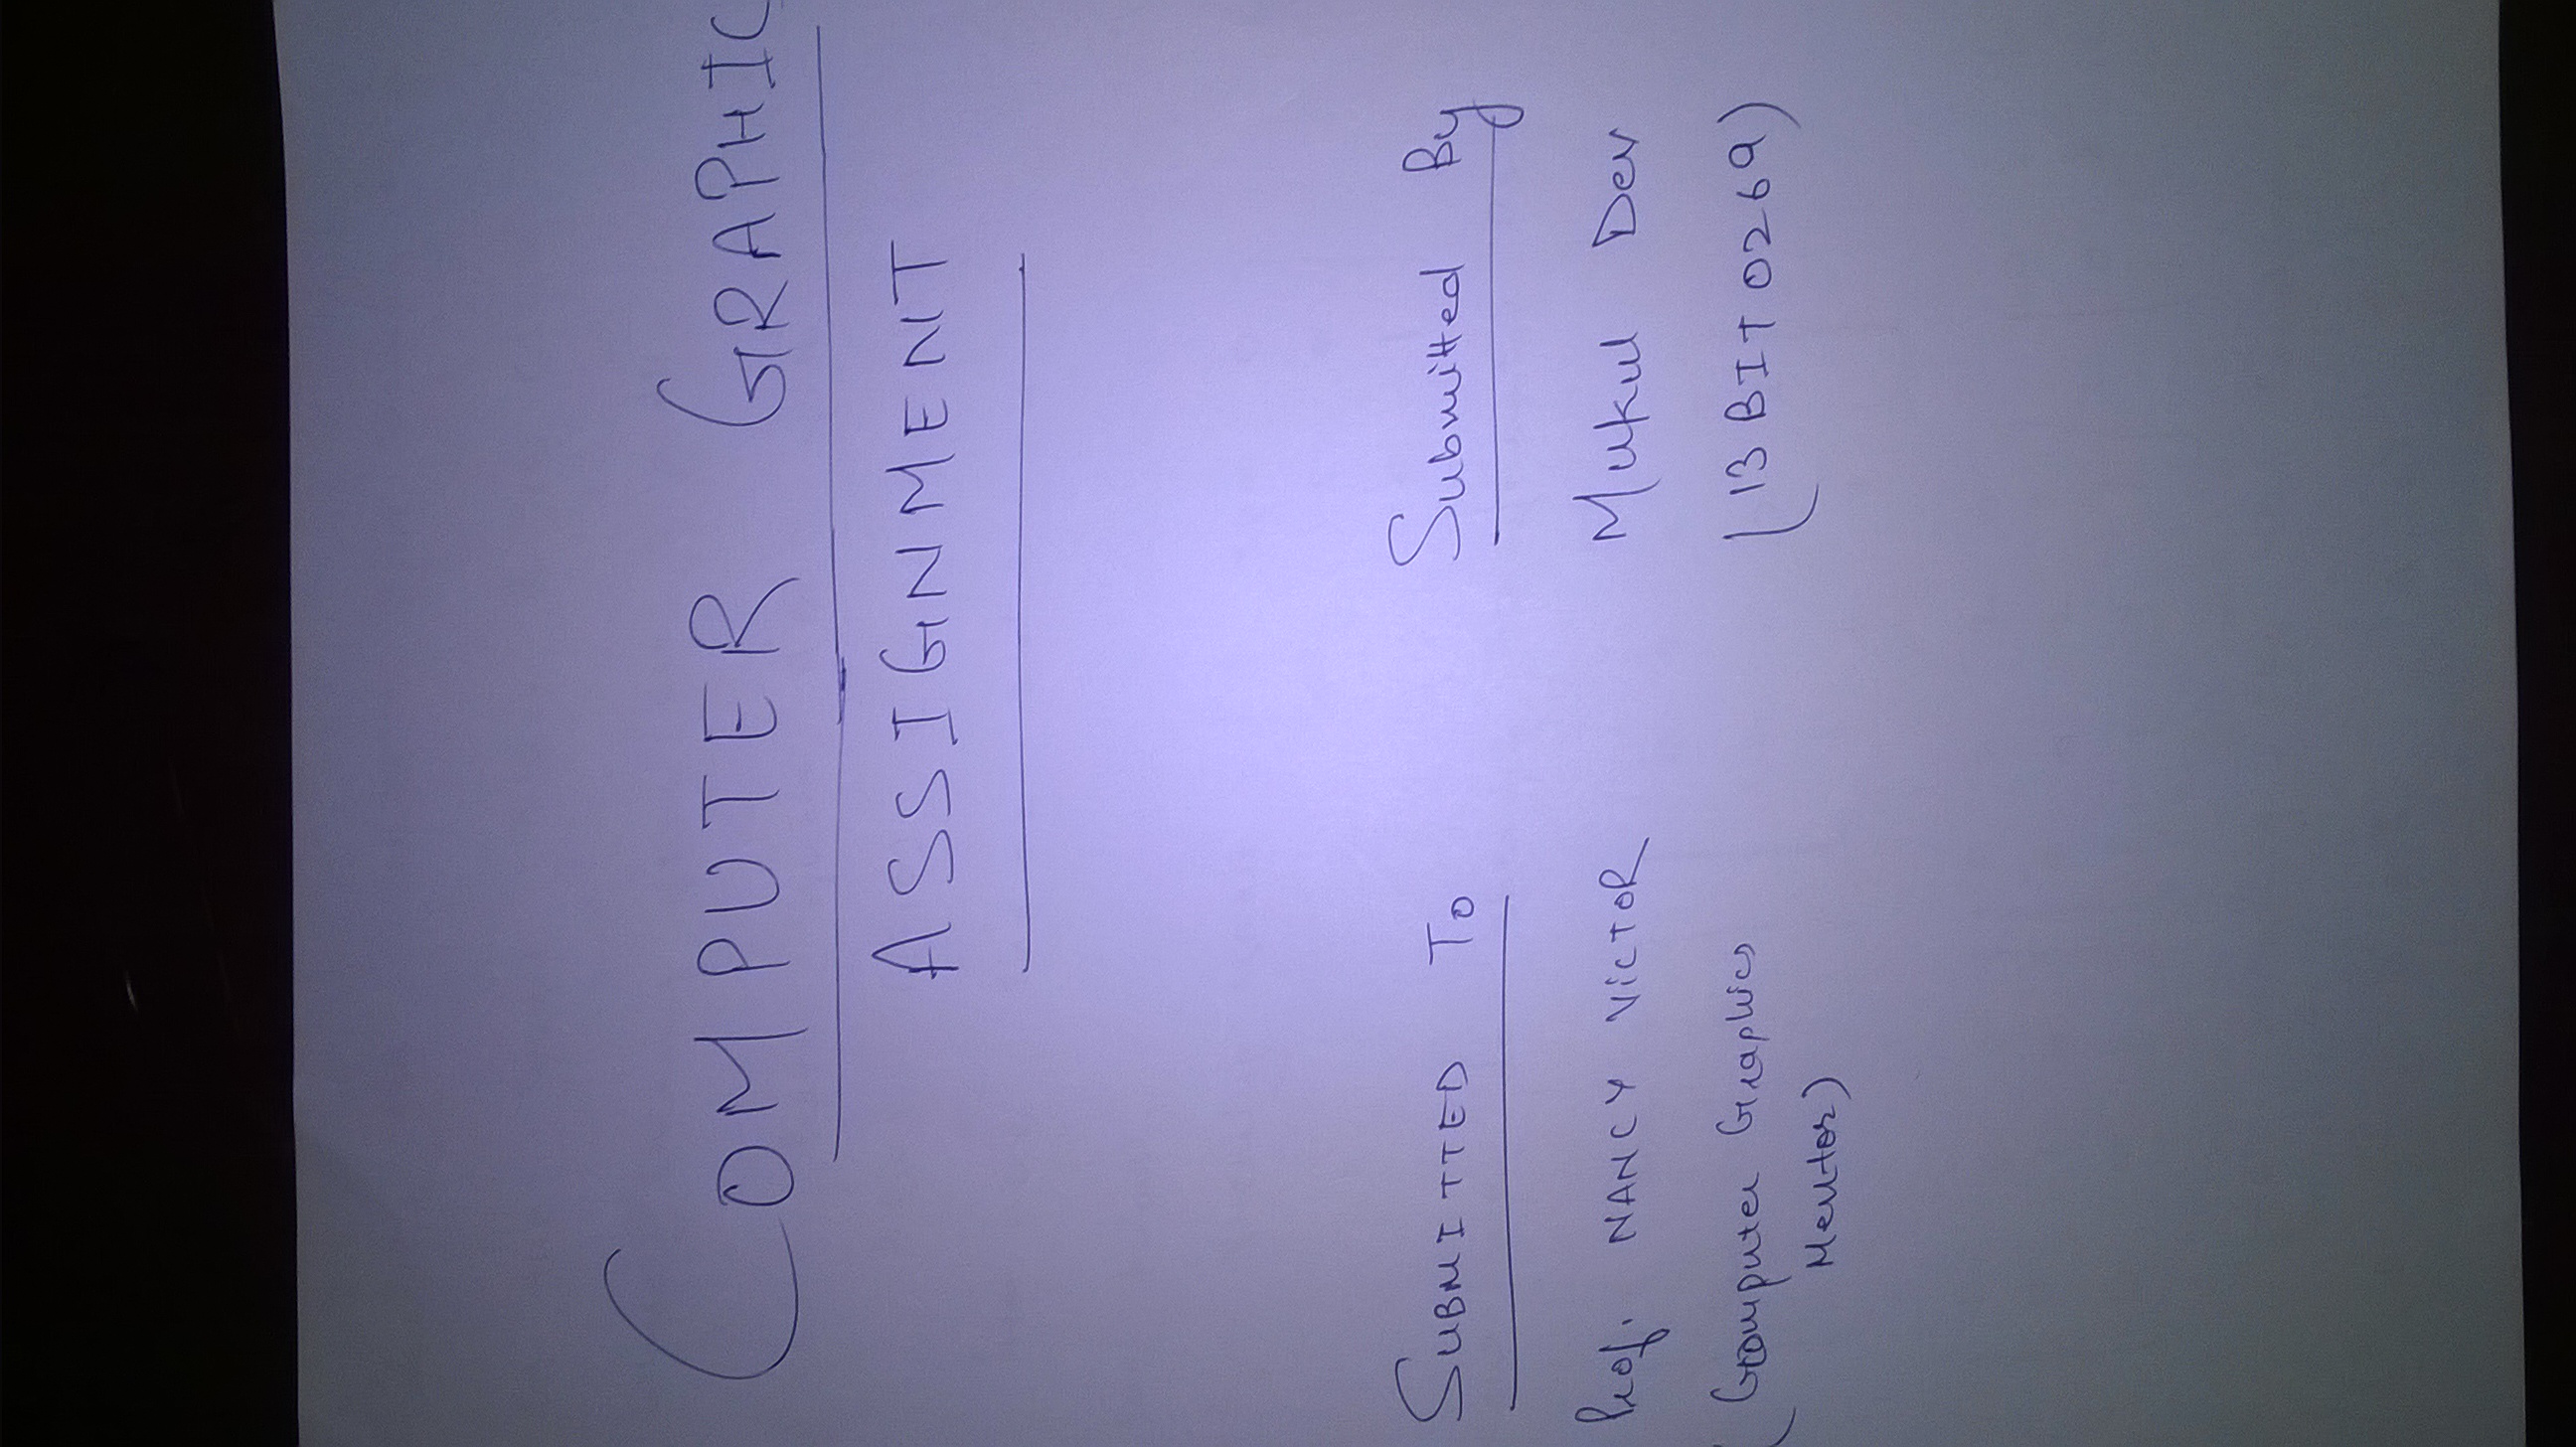 COMPUTER GRAPHIC
ASSIGNMENT
SUBMITTED TO
Prof. NANCY VICTOR
(Computer Graphics
Mentor)
Submitted By
Mukul Dev
(13BIT0269)